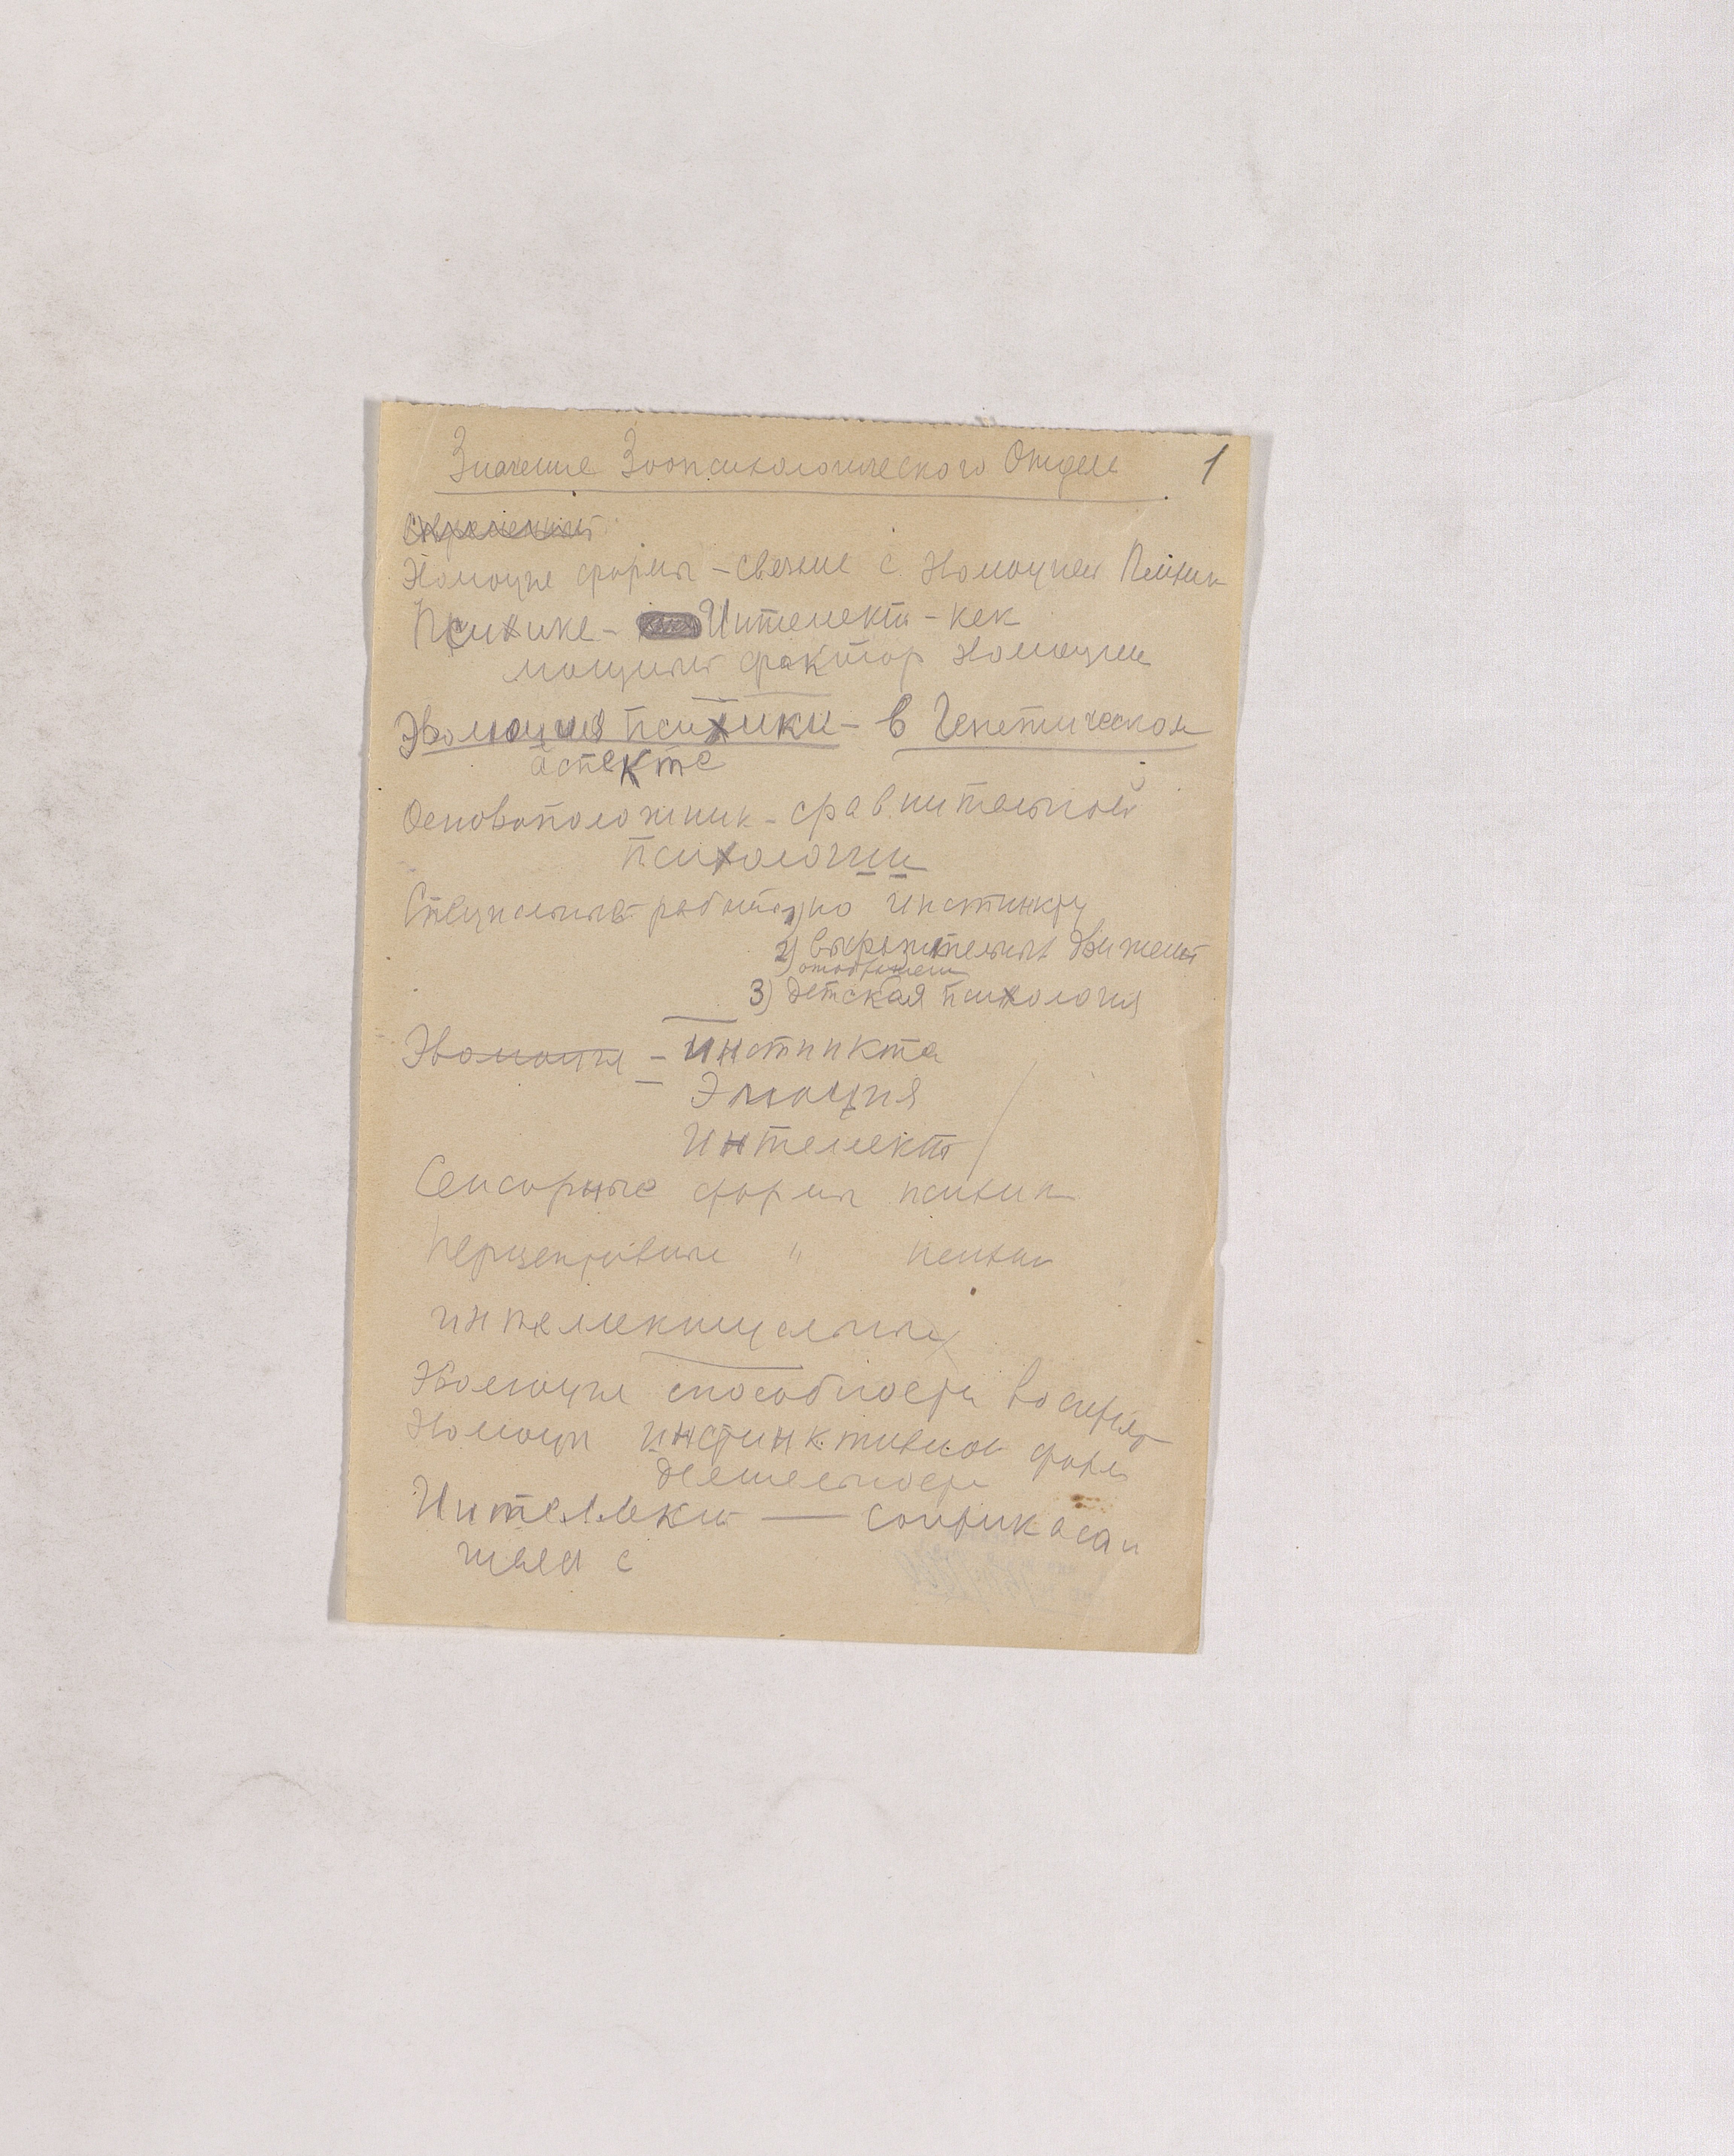 Значение Зоопсихологического Отдела 1
Современный
Эволюция формы – связана с Эволюцией Психики
Психика – Интелект – как
мощный фактор Эволюции
Эволюция психики – в Генетическом
аспекте
Основоположник – сравнительной
психологии
Специальные работы 1) по инстинкту
2) выразительных движений
3) детская психология
Эволюция – Инстинкта
Эмоция
Интелект
Сенсорные формы психики
Перцептивные " психики
интеллектуальные
Эволюция способности восприят
Эволюц инстинктивной форм
деятельности
Интеллект — соприкасаи
щийся с